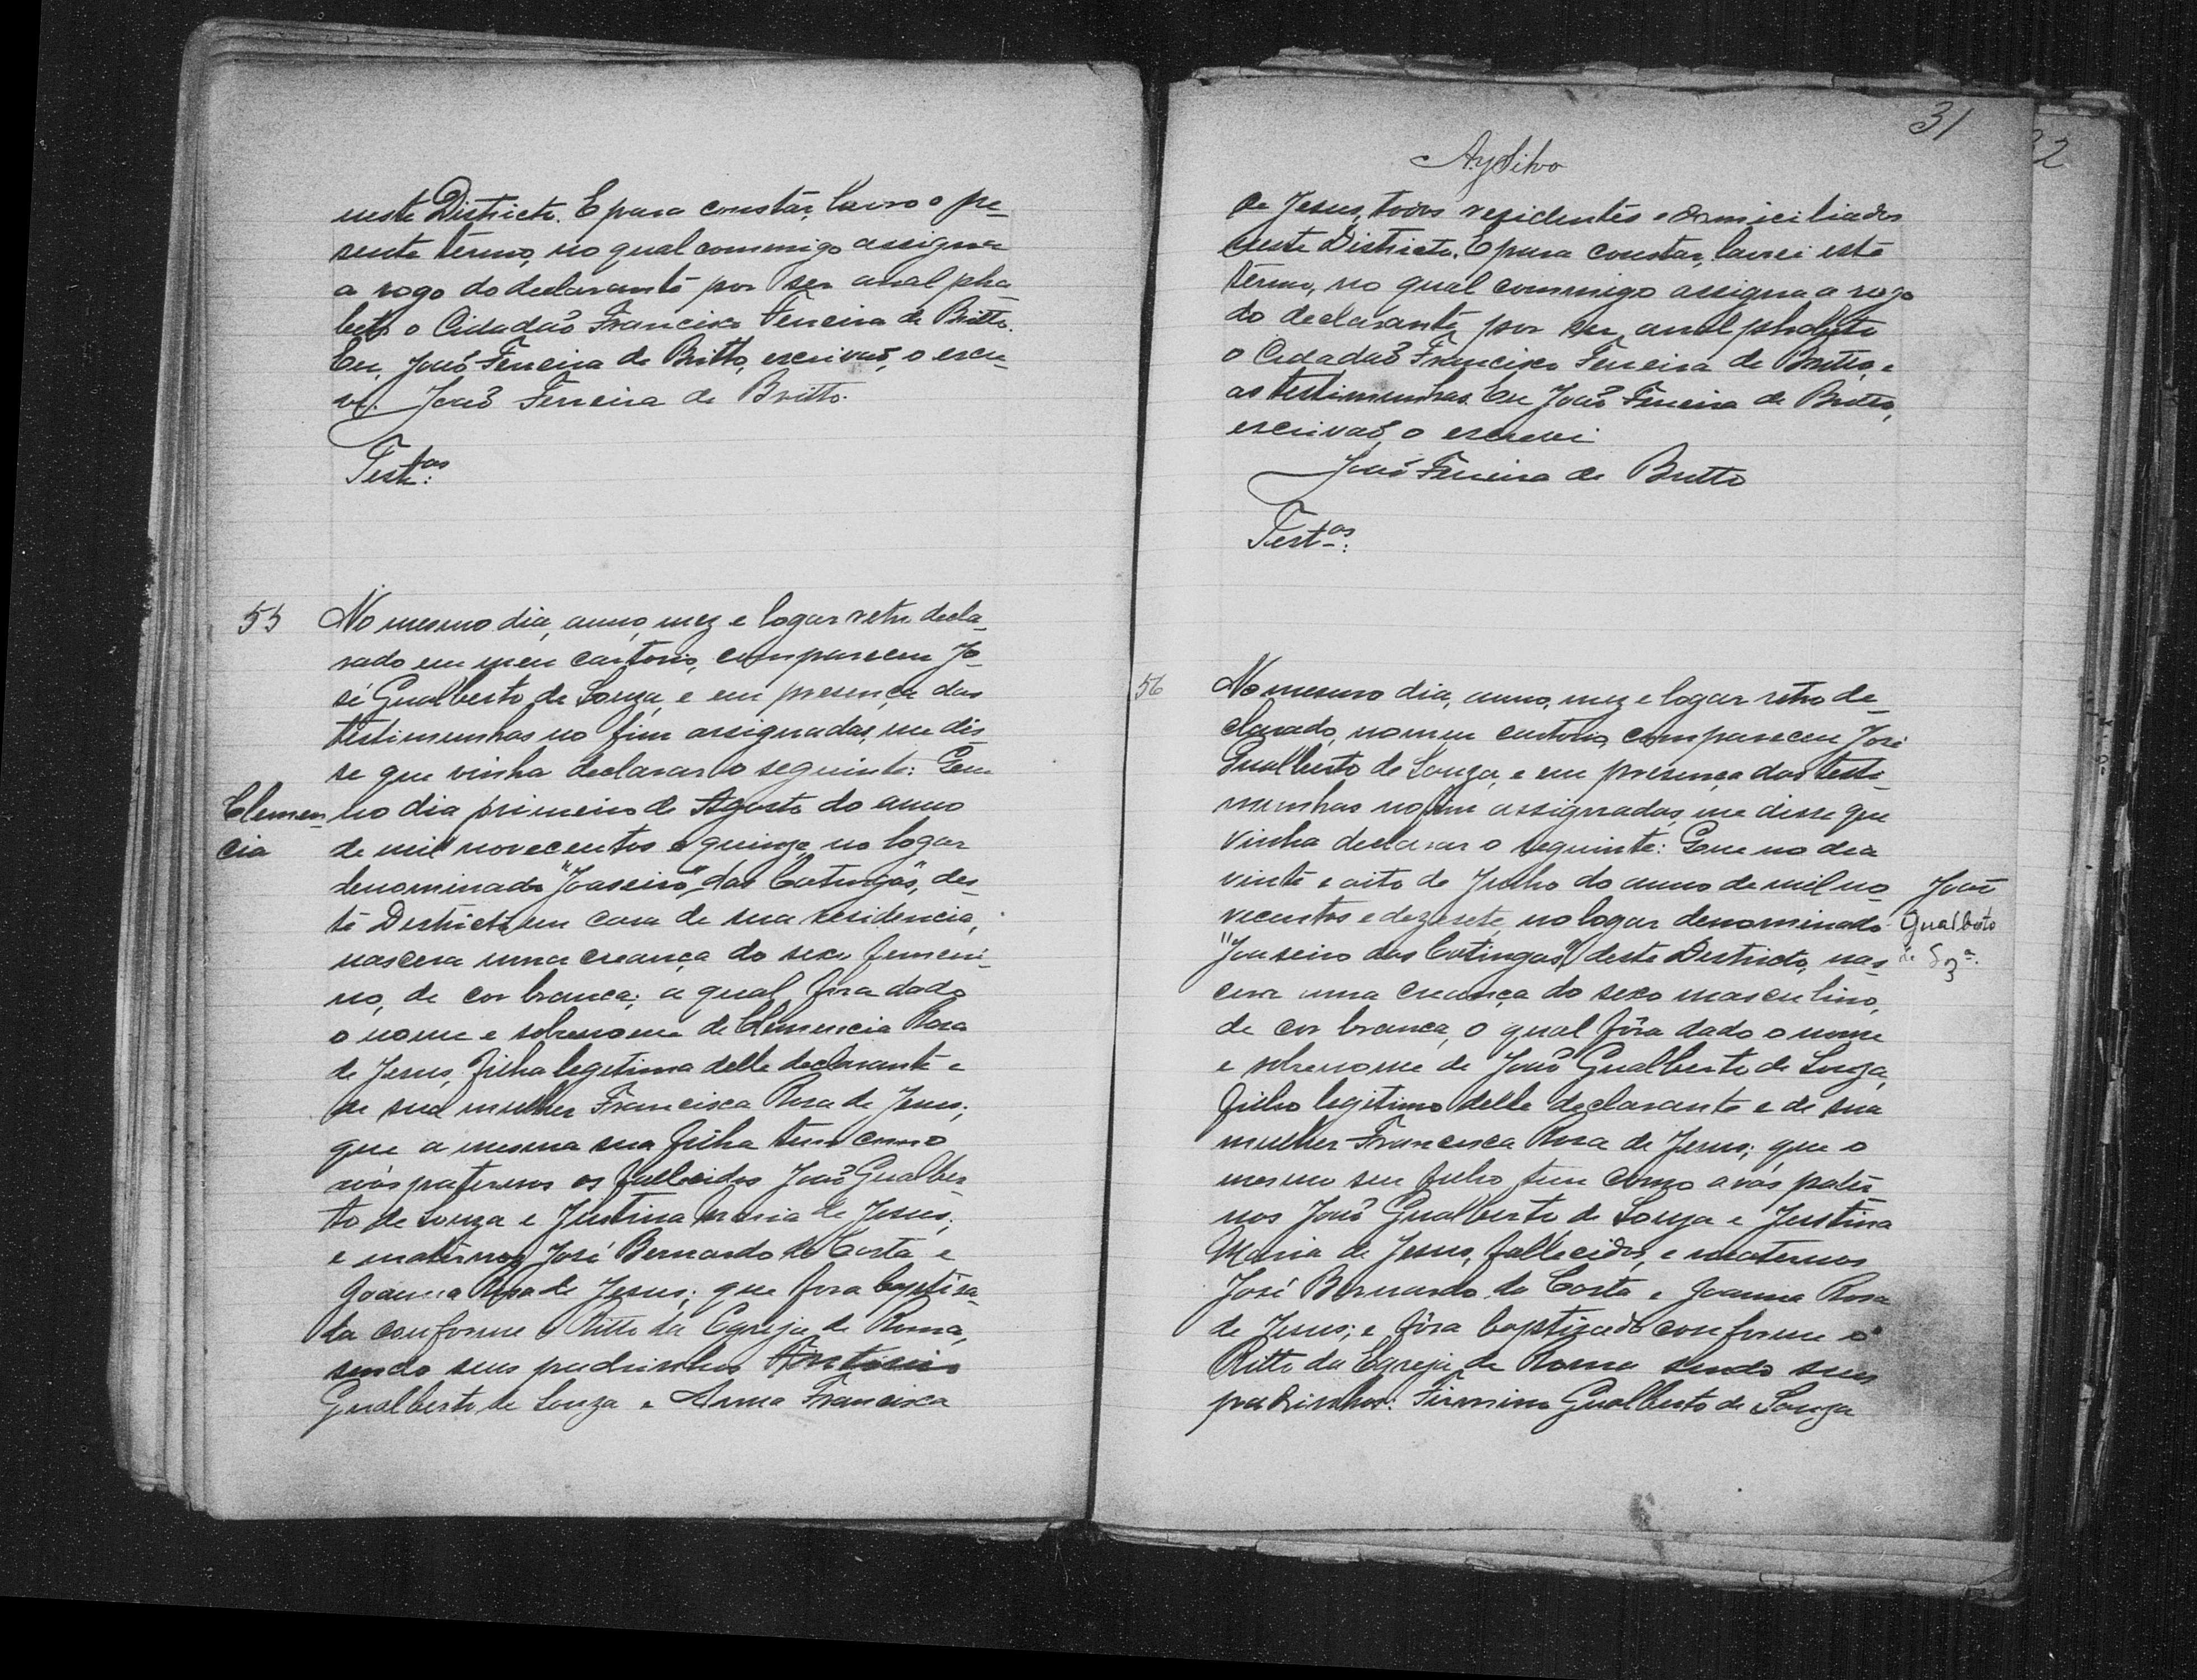 neste Districto. E para constar, lavro o pre_
sente termo, no qual commigo assigna
a rogo do declarante por ser anal pha_
beto o Cidadão Francisco Ferreira de Britto.
Eu, João Ferreira de Britto, escrivaõ, o escre_
vi. João Ferreira de Britto.
Test.as:
55 No mesmo dia, anno, mez e logar retro decla_
rado em meu cartorio, compareceu Jo_
sé Gualberto de Souza, e em presença das
testimunhas no fim assignadas, me dis_
se que vinha declarar o seguinte: Que
Clemen_ no dia primeiro de Agosto do anno
cia de mil novecentos e quinze, no logar
denominado "Joaseiro", das Catingas", des_
te Districto, em casa de sua residencia,
nascera uma creança do sexo femeni_
no, de cor branca; a qual fôra dado
o nome e sobrenome de Clemencia Rosa
de Jesus, filha legitima delle declarante e
de sua mulher Francisca Rosa de Jesus;
que a mesma sua filha tem como
avós paternos os fallecidos João Gualber_
to de Souza e Justina Maria de Jesus,
e maternos José Bernardo da Costa e
Joanna Rosa de Jesus; que fora baptisa_
da conforme o Ritto da Egreja de Roma,
sendo seus padrinhos Antonio
Gualberto de Souza e Anna Francisca
31
32
AySilva
de Jesus, todos residentes e domiciliados
neste Districto. E para constar, lavrei este
termo, no qual commigo assigna a rogo
do declarante, por ser anal phabeto
o Cidadaõ Francisco Ferreira de Britto, e
as testimunhas. Eu João Ferreira de Britto,
escrivaõ, o escrevi
João Ferreira de Britto
Test.as:
56 No mesmo dia, anno, mez e logar retro de_
clarado, no meu cartorio, compareceu José
Gualberto de Souza, e em presença das testi_
munhas no fim assignadas, me disse que
vinha declarar o seguinte: Que no dia
vinte e oito de Junho do anno de mil no_ João
vecentos e dezesete, no logar denominado Gualberto
"Joaseiro das Catingas", deste Destricto, nas_ de Sza.
cera uma creança do sexo masculino,
de cor branca, o qual fôra dado o nome
e sobrenome de João Gualberto de Souza,
filho legitimo delle declarante e de sua
mulher Francisca Rosa de Jesus; que o
mesmo seu filho tem como avós pater_
nos João Gualberto de Souza e Justina
Maria de Jesus, fallecidos, e maternos
José Bernardo da Costa e Joanna Rosa
de Jesus; e fôra baptizado conforme o
Ritto da Egreja de Roma sendo seus
padrinhos: Firmino Gualberto de Souza